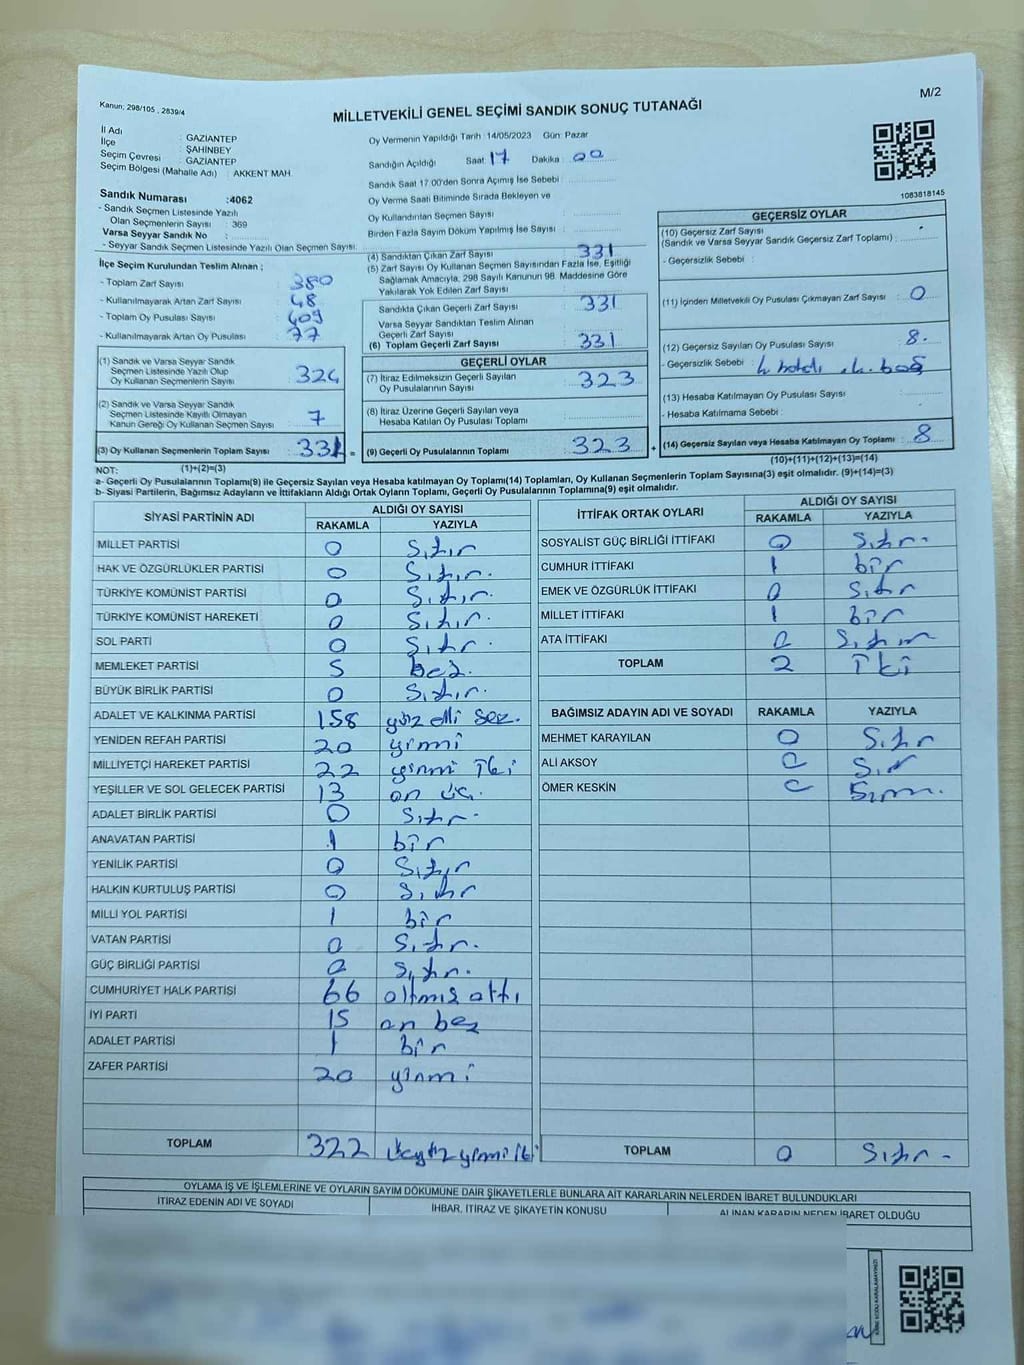 M/2
Kanun; 298/105 , 2839/4
MİLLETVEKİLİ GENEL SEÇİMİ SANDIK SONUÇ TUTANAĞI
İl Adı : GAZİANTEP
İlçe : ŞAHİNBEY
Seçim Çevresi : GAZİANTEP
Seçim Bölgesi (Mahalle Adı) : AKKENT MAH.
Oy Vermenin Yapıldığı Tarih :14/05/2023 Gün: Pazar
Sandığın Açıldığı Saat 17 Dakika : 00
Sandık Saat 17:00'den Sonra Açımış İse Sebebi :
Oy Verme Saati Bitiminde Sırada Bekleyen ve
Oy Kullandırılan Seçmen Sayısı :
Birden Fazla Sayım Döküm Yapılmış İse Sayısı :
1083818145
Sandık Numarası :4062
- Sandık Seçmen Listesinde Yazılı
Olan Seçmenlerin Sayısı : 369
Varsa Seyyar Sandık No :
- Seyyar Sandık Seçmen Listesinde Yazılı Olan Seçmen Sayısı:
İlçe Seçim Kurulundan Teslim Alınan ;
- Toplam Zarf Sayısı : 380
- Kullanılmayarak Artan Zarf Sayısı : 48
- Toplam Oy Pusulası Sayısı : 409
- Kullanılmayarak Artan Oy Pusulası : 77
(1) Sandık ve Varsa Seyyar Sandık
Seçmen Listesinde Yazılı Olup
Oy Kullanan Seçmenlerin Sayısı : 324
(2) Sandık ve Varsa Seyyar Sandık
Seçmen Listesinde Kayıtlı Olmayan
Kanun Gereği Oy Kullanan Seçmen Sayısı : 7
(3) Oy Kullanan Seçmenlerin Toplam Sayısı : 331 =
(1)+(2)=(3)
(4) Sandıktan Çıkan Zarf Sayısı : 331
(5) Zarf Sayısı Oy Kullanan Seçmen Sayısından Fazla İse, Eşitliği
Sağlamak Amacıyla, 298 Sayılı Kanunun 98. Maddesine Göre
Yakılarak Yok Edilen Zarf Sayısı :
Sandıkta Çıkan Geçerli Zarf Sayısı : 331
Varsa Seyyar Sandıktan Teslim Alınan
Geçerli Zarf Sayısı :
(6) Toplam Geçerli Zarf Sayısı : 331
GEÇERLİ OYLAR
(7) İtiraz Edilmeksizin Geçerli Sayılan
Oy Pusulalarının Sayısı : 323
(8) İtiraz Üzerine Geçerli Sayılan veya
Hesaba Katılan Oy Pusulası Toplamı :
(9) Geçerli Oy Pusulalarının Toplamı : 323 +
GEÇERSİZ OYLAR
(10) Geçersiz Zarf Sayısı
(Sandık ve Varsa Seyyar Sandık Geçersiz Zarf Toplamı) :
- Geçersizlik Sebebi :
(11) İçinden Milletvekili Oy Pusulası Çıkmayan Zarf Sayısı : 0
(12) Geçersiz Sayılan Oy Pusulası Sayısı : 8.
- Geçersizlik Sebebi :
(13) Hesaba Katılmayan Oy Pusulası Sayısı :
- Hesaba Katılmama Sebebi :
(14) Geçersiz Sayılan veya Hesaba Katılmayan Oy Toplamı : 8
(10)+(11)+(12)+(13)=(14)
NOT:
a- Geçerli Oy Pusulalarının Toplamı(9) ile Geçersiz Sayılan veya Hesaba katılmayan Oy Toplamı(14) Toplamları, Oy Kullanan Seçmenlerin Toplam Sayısına(3) eşit olmalıdır. (9)+(14)=(3)
b- Siyasi Partilerin, Bağımsız Adayların ve İttifakların Aldığı Ortak Oyların Toplamı, Geçerli Oy Pusulalarının Toplamına(9) eşit olmalıdır.
SİYASİ PARTİNİN ADI ALDIĞI OY SAYISI
RAKAMLA YAZIYLA
MİLLET PARTİSİ 0 Sıfır
HAK VE ÖZGÜRLÜKLER PARTİSİ 0 Sıfır.
TÜRKİYE KOMÜNİST PARTİSİ 0 Sıfır.
TÜRKİYE KOMÜNİST HAREKETİ 0 Sıfır.
SOL PARTİ 0 Sıfır.
MEMLEKET PARTİSİ 5 beş.
BÜYÜK BİRLİK PARTİSİ 0 Sıfır.
ADALET VE KALKINMA PARTİSİ 158 yüz elli sez.
YENİDEN REFAH PARTİSİ 20 yirmi
MİLLİYETÇİ HAREKET PARTİSİ 22 yirmi iki
YEŞİLLER VE SOL GELECEK PARTİSİ 13 on üç.
ADALET BİRLİK PARTİSİ 0 Sıfır.
ANAVATAN PARTİSİ 1 bir
YENİLİK PARTİSİ 0 Sıfır
HALKIN KURTULUŞ PARTİSİ 0 Sıfır
MİLLİ YOL PARTİSİ 1 bir
VATAN PARTİSİ 0 Sıfır.
GÜÇ BİRLİĞİ PARTİSİ 0 Sıfır.
CUMHURİYET HALK PARTİSİ 66 altmış altı
İYİ PARTİ 15 on beş
ADALET PARTİSİ 1 bir
ZAFER PARTİSİ 20 yirmi
TOPLAM 322 üçyüz yirmi iki
İTTİFAK ORTAK OYLARI ALDIĞI OY SAYISI
RAKAMLA YAZIYLA
SOSYALİST GÜÇ BİRLİĞİ İTTİFAKI 0 Sıfır.
CUMHUR İTTİFAKI 1 bir
EMEK VE ÖZGÜRLÜK İTTİFAKI 0 Sıfır
MİLLET İTTİFAKI 1 bir
ATA İTTİFAKI 0 Sıfır
TOPLAM 2 iki
BAĞIMSIZ ADAYIN ADI VE SOYADI RAKAMLA YAZIYLA
MEHMET KARAYILAN 0 Sıfır
ALİ AKSOY 0 Sıfır
ÖMER KESKİN 0 Sıfır.
TOPLAM 0 Sıfır -
OYLAMA İŞ VE İŞLEMLERİNE VE OYLARIN SAYIM DÖKÜMÜNE DAİR ŞİKAYETLERLE BUNLARA AİT KARARLARIN NELERDEN İBARET BULUNDUKLARI
İTİRAZ EDENİN ADI VE SOYADI İHBAR, İTİRAZ VE ŞİKAYETİN KONUSU ALINAN KARARIN NEDEN İBARET OLDUĞU